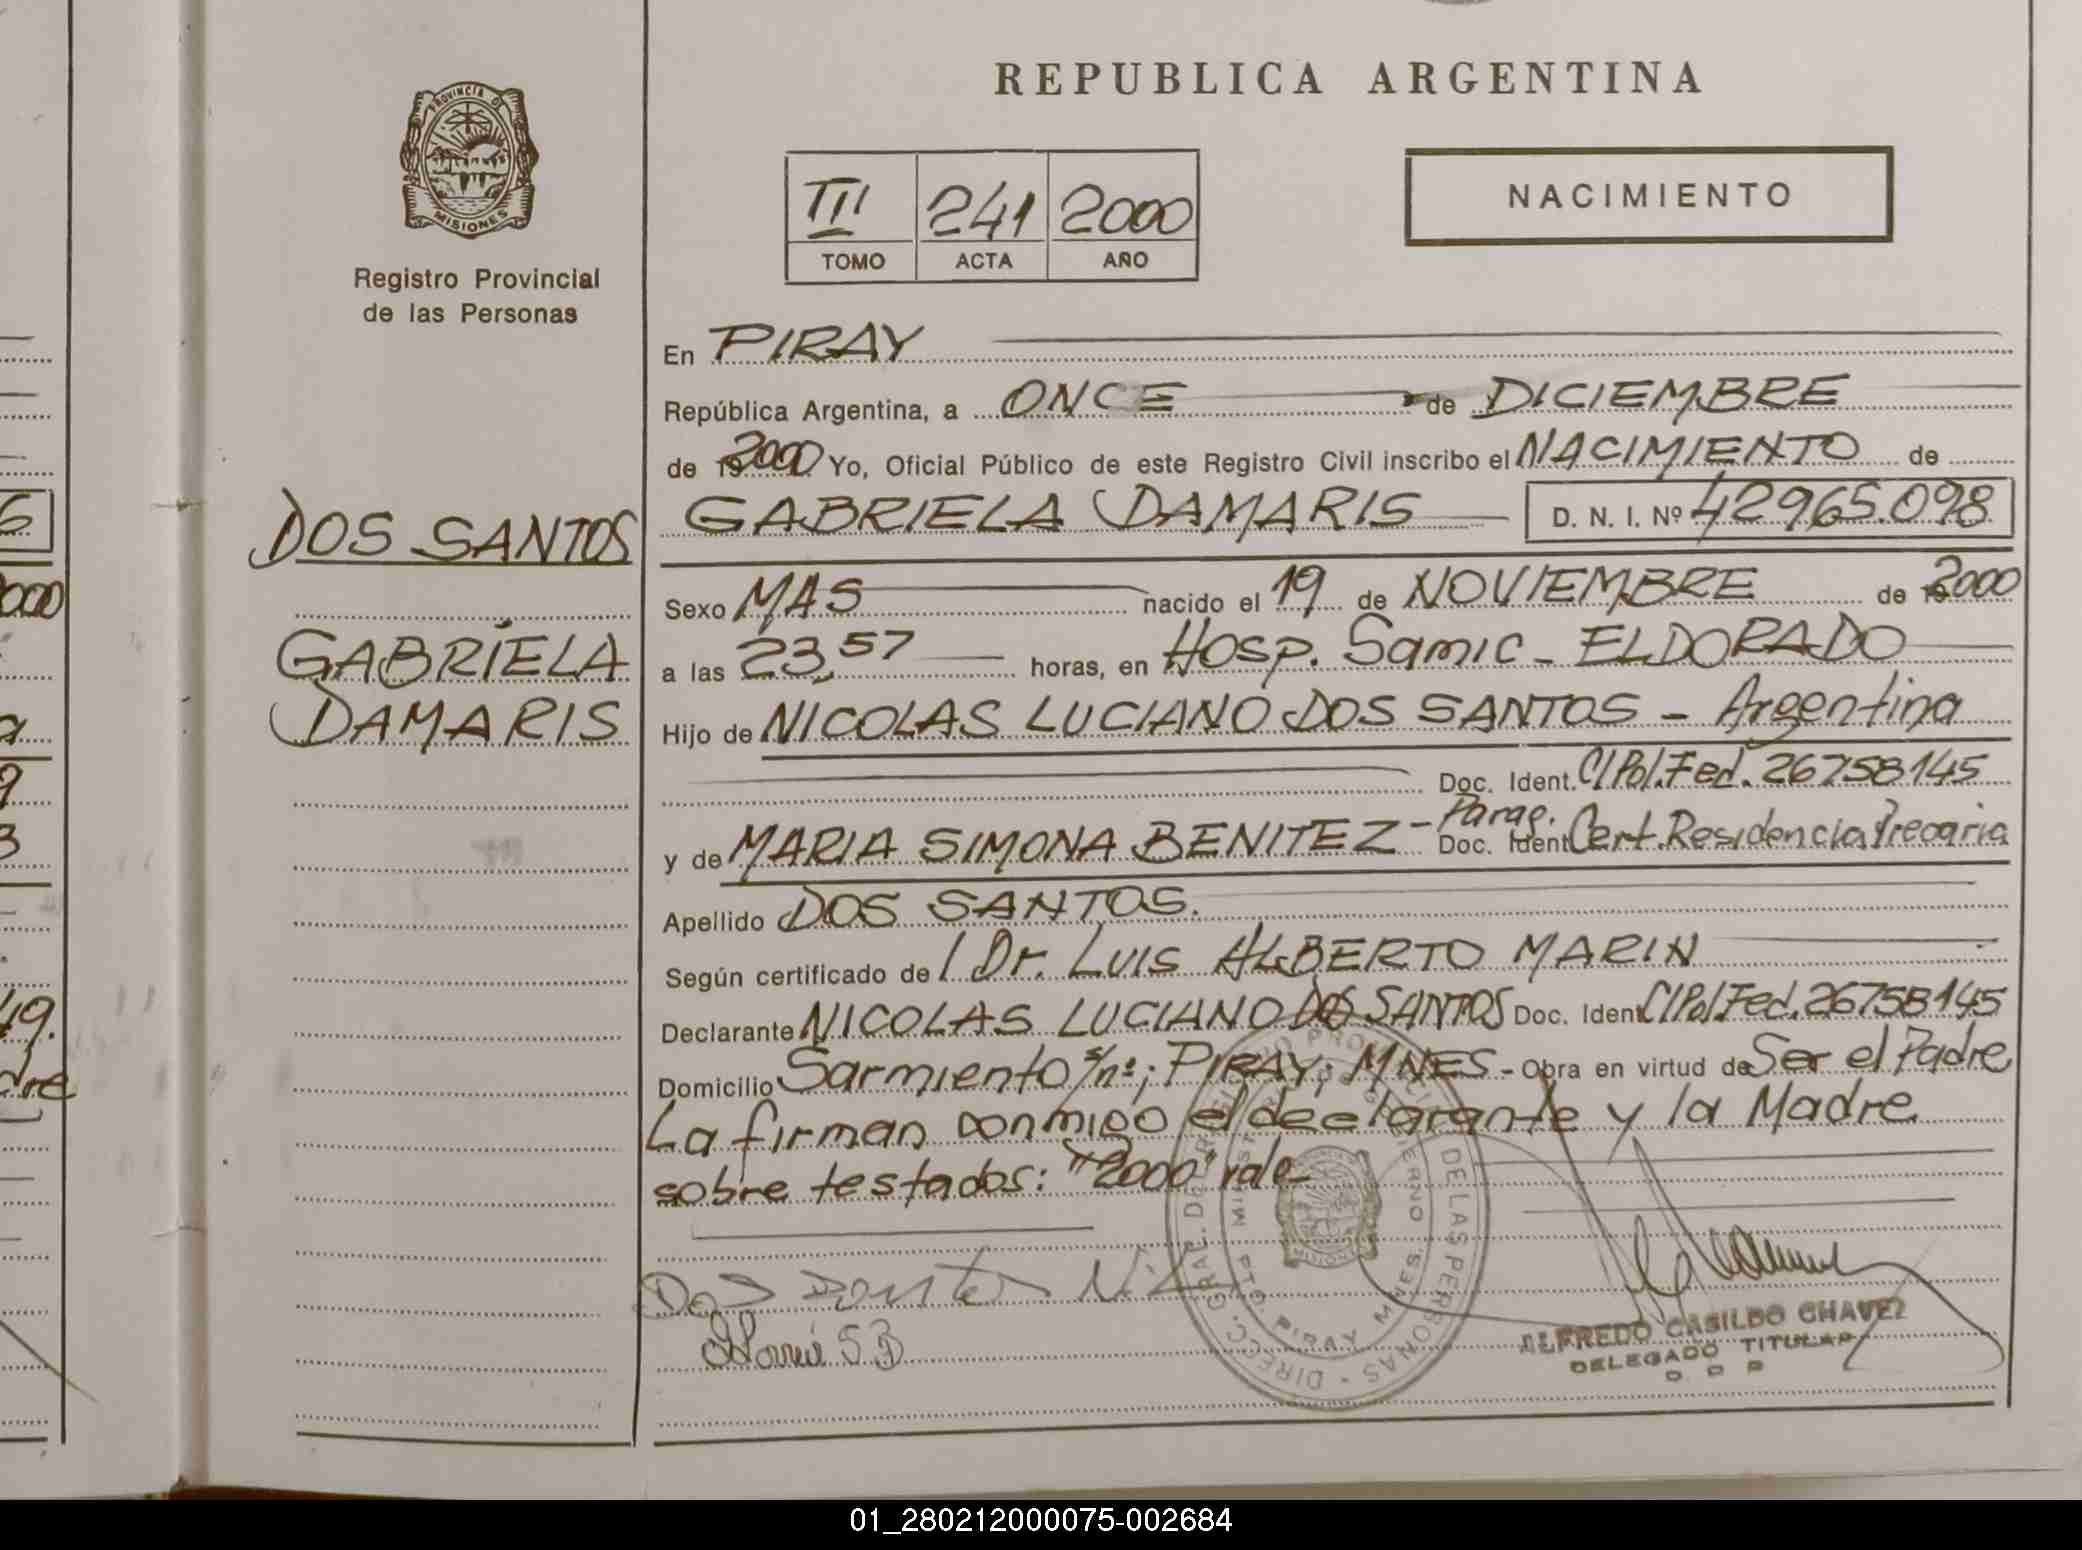 REPUBLICA ARGENTINA
PROVINCIA DE
MISIONES
Registro Provincial
de las Personas
III 241 2000
TOMO ACTA AÑO
NACIMIENTO
En PIRAY
República Argentina, a ONCE de DICIEMBRE
de 19 2000 Yo, Oficial Público de este Registro Civil inscribo el NACIMIENTO de
DOS SANTOS
GABRIELA
DAMARIS
GABRIELA DAMARIS D. N. I. Nº 42965.098
Sexo MAS nacido el 19 de NOVIEMBRE de 19 2000
a las 23,57 horas, en Hosp. Samic - ELDORADO
Hijo de NICOLAS LUCIANO DOS SANTOS - Argentina
Doc. Ident. CIPol.Fed. 26758145
y de MARIA SIMONA BENITEZ - Parag. Doc. Ident Cert. Residencia Precaria
Apellido DOS SANTOS.
Según certificado de Dr. LUIS ALBERTO MARIN
Declarante NICOLAS LUCIANO DOS SANTOS Doc. Ident CIPol.Fed. 26758145
Domicilio Sarmiento s/nº; PIRAY; MNES - Obra en virtud de Ser el Padre
La firman conmigo el declarante y la Madre
sobre testados: "2000" vale
DIRECC. GRAL. DE REGISTRO PROVINCIAL DE LAS PERSONAS
PTO. PIRAY MNES.
Dos Santos Ni
S B
ALFREDO CASILDO CHAVEZ
DELEGADO TITULAR
6
2000
a
9
3
49.
dre
01_280212000075-002684